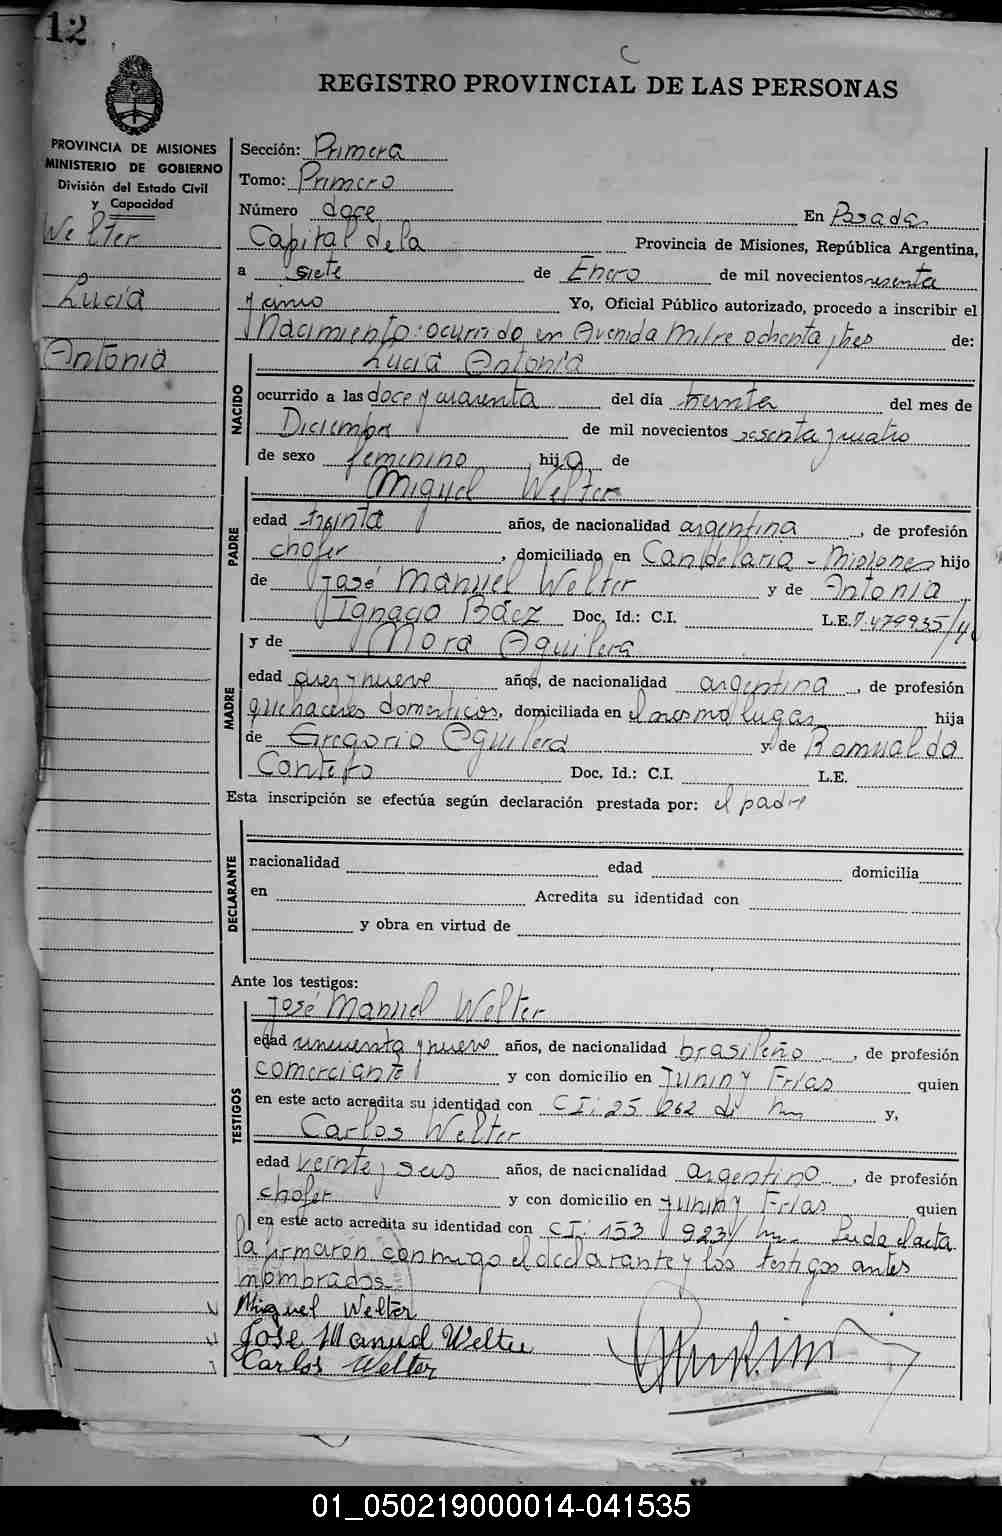 12
REGISTRO PROVINCIAL DE LAS PERSONAS
PROVINCIA DE MISIONES
MINISTERIO DE GOBIERNO
División del Estado Civil
y Capacidad
Welter
Lucia
Antonia
Sección: Primera
Tomo: Primero
Número doce En Posadas
Capital de la Provincia de Misiones, República Argentina,
a siete de Enero de mil novecientos sesenta
y cinco Yo, Oficial Público autorizado, procedo a inscribir el
Nacimiento: ocurrido en Avenida Mitre ochenta y tres de:
Lucia Antonia
NACIDO
ocurrido a las doce y cuarenta del día treinta del mes de
Diciembre de mil novecientos sesenta y cuatro
de sexo femenino hija de
Miguel Welter
PADRE
edad treinta años, de nacionalidad argentina, de profesión
chofer, domiciliado en Candelaria - Misiones hijo
de José Manuel Welter y de Antonia
Ignacia Báez Doc. Id.: C.I. L.E. 7.479935/
y de Mora Aguilera
MADRE
edad diez y nueve años, de nacionalidad argentina, de profesión
quehaceres domésticos, domiciliada en el mesmo lugar hija
de Gregorio Aguilera y de Romualda
Contero Doc. Id.: C.I. L.E.
Esta inscripción se efectúa según declaración prestada por: el padre
DECLARANTE
nacionalidad edad domicilia
en Acredita su identidad con
y obra en virtud de
Ante los testigos:
José Manuel Welter
TESTIGOS
edad cincuenta y nueve años, de nacionalidad brasileño, de profesión
comerciante y con domicilio en Junin y Frias quien
en este acto acredita su identidad con CI: 25 262 y,
Carlos Welter
edad veinte y seis años, de nacionalidad argentino, de profesión
chofer y con domicilio en Junin y Frias quien
en este acto acredita su identidad con CI: 153 923/ Leida el acta
la firmaron conmigo el declarante y los testigos antes
nombrados
Miguel Welter
José Manuel Welter
Carlos Welter
01_050219000014-041535